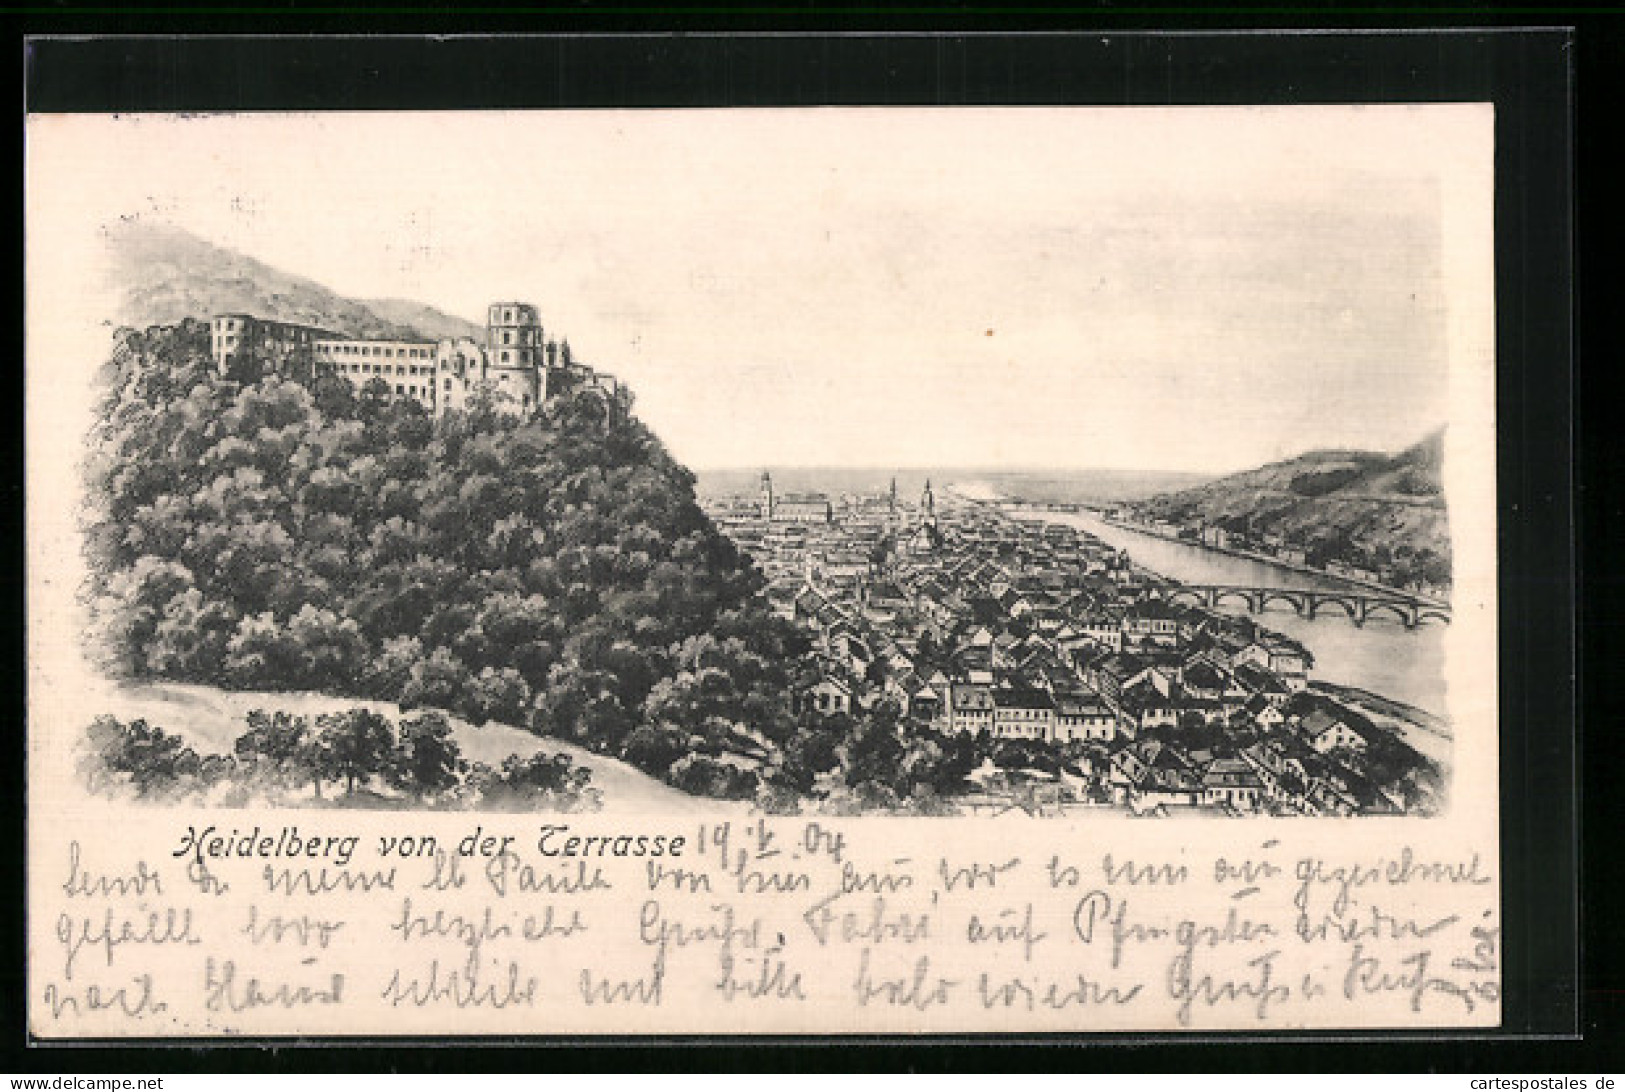 Heidelberg von der Terrasse 19.V.04
Sende Dir meine lb Paula von hier aus, wo es mir ausgezeichnet
gefällt 1000 herzliche Grüße. Fahre auf Pfingsten wieder
nach Hause schreibe mir bitte bald wieder Gruß u Kuß
www.cartespostales.eu
cartespostales de